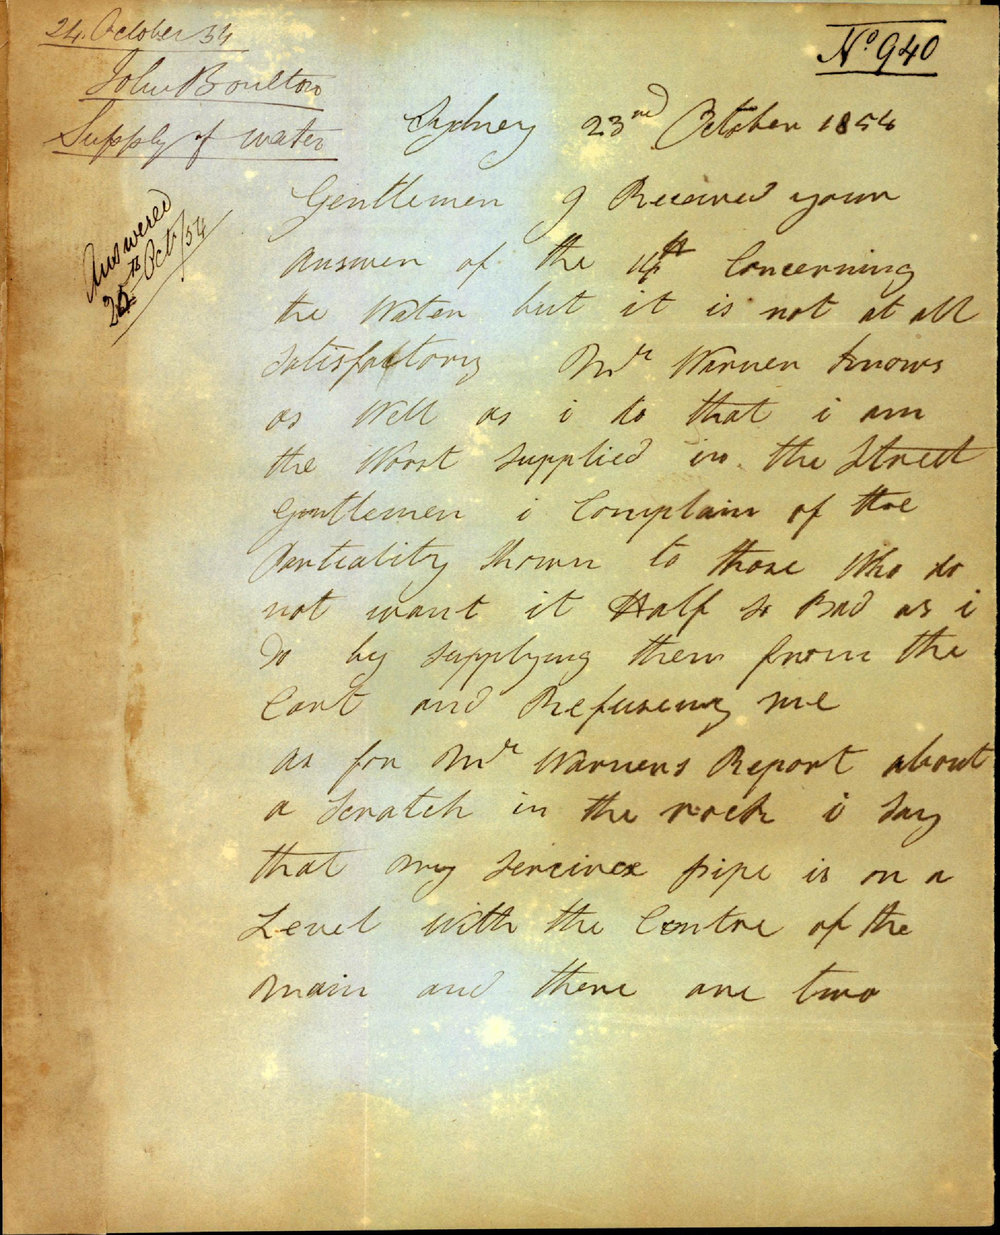 24. October 54
John Boulton
Supply of water
Answered
26th Oct/54
No 940
Sydney 23nd October 1854
Gentlemen I Received your
Answer of the 14th Concerning
the Water but it is not at all
Satisfactory Mr Warner knows
as Well as i do that i am
the Worst Supplied in the Street
Gentlemen i Complain of the
Partiality Shown to those Who do
not want it Half so Bad as i
Do by supplying them from the
Cart and Refuseing me
as for Mr Warners Report about
a Scratch in the rock i Say
that My Service pipe is on a
Level with the Centre of the
Main and there are two